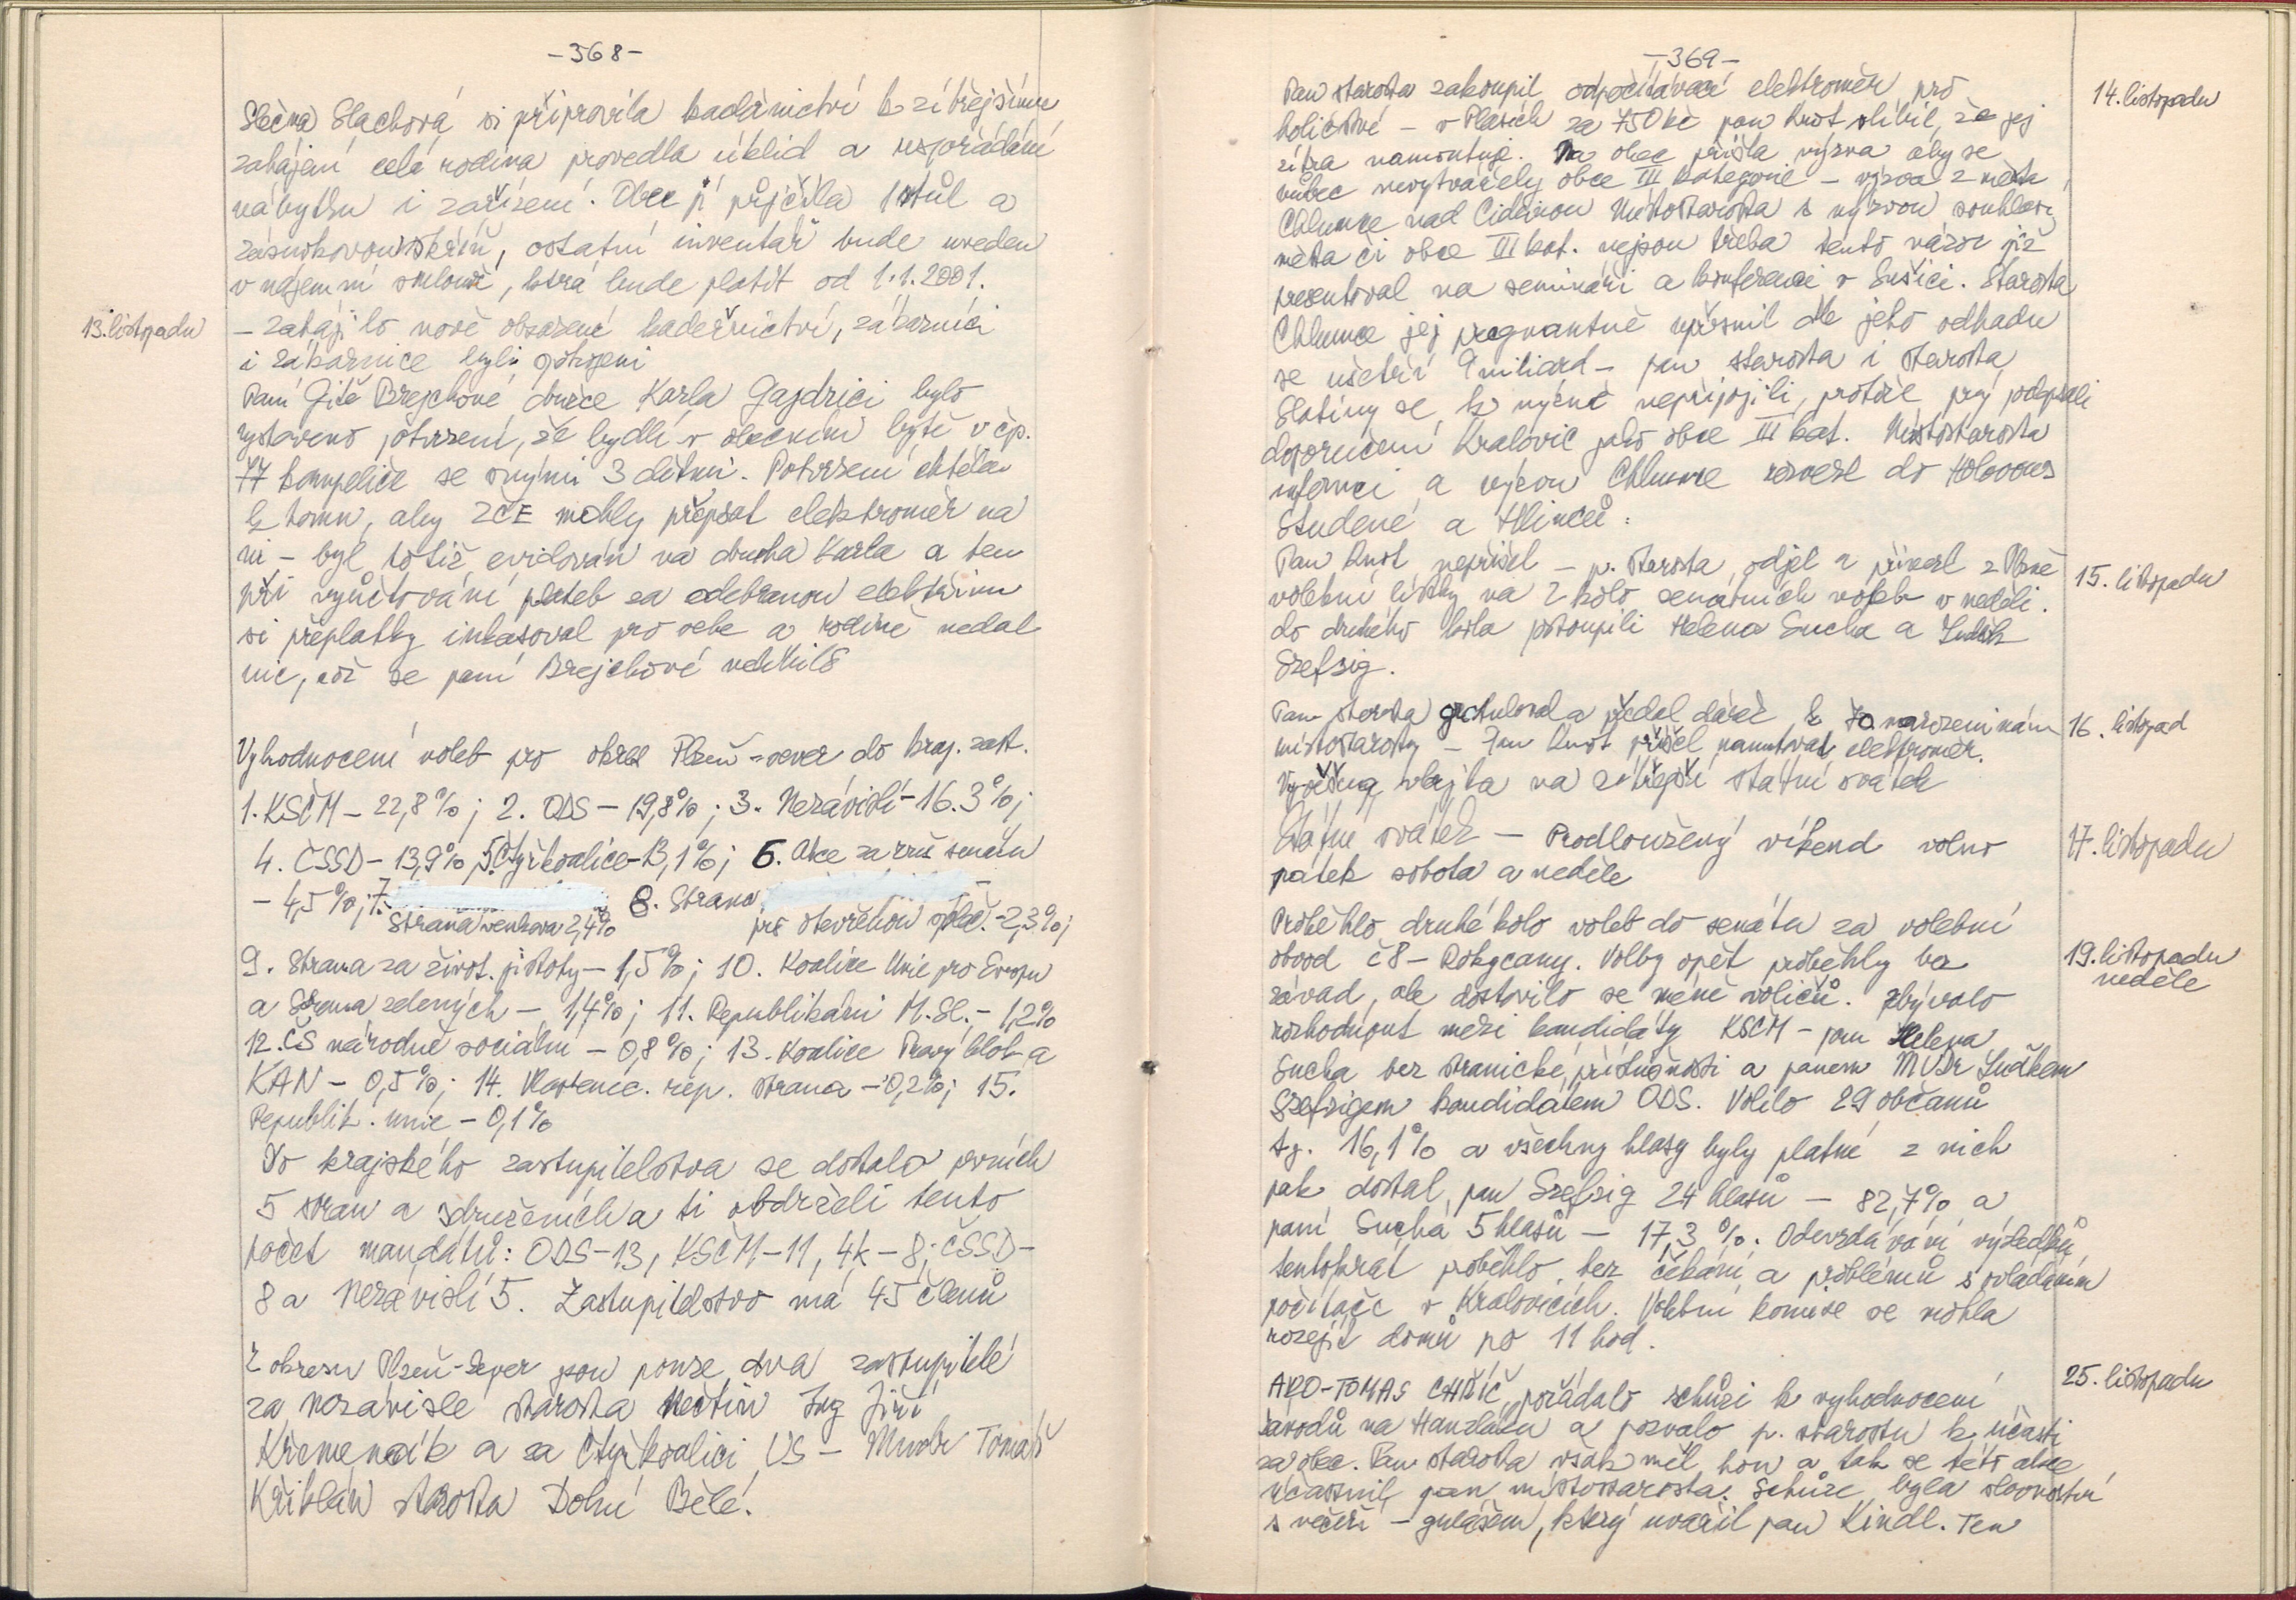 -368-
Slečna Slachová si připravila kadeřnictví k zítřejšímu
zahájení celá rodina provedla úklid a uspořádání
nábytku i zařízení. Obec jí půjčila 1 stůl a
zásuvkovou skříň, ostatní inventář bude uveden
v nájemní smlouvě, která bude platit od 1.1.2001.
13. listopadu
- zahájilo nově obsazené kadeřnictví, zákazníci
i zákaznice byli potěšeni
Paní Gitě Brejchové družce Karla Gajdzici bylo
vystaveno potvrzení, že bydlí v obecním bytě v čp.
77 kampelice se svými 3 dětmi. Potvrzení chtěla
k tomu, aby ZČE mohly přepsat elektroměr na
ni - byl totiž evidován na druha Karla a ten
při vyúčtování plateb za odebranou elektřinu
si přeplatky inkasoval pro sebe a rodině nedal
nic, což se paní Brejchové nelíbilo
Vyhodnocení voleb pro okres Plzeň-sever do kraj. zast.
1. KSČM - 22,8%; 2. ODS - 19,8%; 3. Nezávislí - 16.3%;
4. ČSSD - 13,9%; 5. Čtyřkoalice - 13,1%; 6. Akce za zruš senátu
- 4,5%; 7. 8. Strana
Strana venkova 2,4% pro otevřenou společ. - 2,3%;
9. Strana za život. jistoty - 1,5%; 10. Koalice Unie pro Evropu
a Strana zelených - 1,4%; 11. Republikáni M. Sl. - 1,2%
12. ČS národně sociální - 0,8%; 13. Koalice Pravý blok a
KAN - 0,5%; 14. Vlastenec. rep. strana - 0,2%; 15.
Republik. unie - 0,1%
Do krajského zastupitelstva se dostalo prvních
5 stran a sdruženích a ti obdrželi tento
počet mandátů: ODS-13, KSČM-11, 4k-8; ČSSD-
8 a Nezávislí 5. Zastupitelstvo má 45 členů
Z okresu Plzeň-Sever jsou pouze dva zastupitelé
za Nezávislé starosta Nečtin Ing Jiří
Křemenák a za Čtyřkoalici US - Mudr Tomáš
Křiklán starosta Dolní Bělé.
-369-
14. listopadu
Pan starosta zakoupil odpočítávací elektroměr pro
holičství - v Plasích za 750 kč pan Knot slíbil, že jej
zítra namontuje. Na obec přišla výzva aby se
vůbec nevytvářely obce III kategorie - výzva z města
Chlumce nad Cidlinou Místostarosta s výzvou souhlasí
města či obce III kat. nejsou třeba tento názor již
presentoval na semináři a konferenci v Sušici. Starosta
Chlumce jej pregnantně upřesnil dle jeho odhadu
se ušetří 9 miliard - pan starosta i starosta
Slatiny se k výzvě nepřipojili, protože prý podepsali
doporučení Kralovic jako obce III kat. Místostarosta
informaci a výzvu Chlumce rozvezl do Holovous
Studené a Hlinců.
15. listopadu
Pan Knot nepřišel - p. starosta odjel a přivezl z Plzně
volební lístky na 2 kolo senátních voleb v neděli.
do druhého kola postoupili Helena Suchá a Luděk
Szefzig.
16. listopad
Pan starosta gratuloval a předal dárek k 70 narozeninám
místostarosty - Pan Knot přišel namontovat elektroměr.
Vyvěšena vlajka na zítřejší státní svátek
17. listopadu
Státní svátek - Prodloužený víkend volno
pátek sobota a neděle
19. listopadu
neděle
Proběhlo druhé kolo voleb do senátu za volební
obvod č8 - Rokycany. Volby opět proběhly bez
závad, ale dostavilo se méně voličů. Zbývalo
rozhodnout mezi kandidáty KSČM - paní Helena
Suchá bez stranické příslušnosti a panem MVDr Luďkem
Szefzigem kandidátem ODS. Volilo 29 občanů
tj. 16,1% a všechny hlasy byly platné z nich
pak dostal pan Szefzig 24 hlasů - 82,7% a
paní Suchá 5 hlasů - 17,3%. Odevzdávání výsledků
tentokrát proběhlo bez čekání a problémů s ovládáním
počítače v Kralovicích. Volební komise se mohla
rozejít domů po 11 hod.
25. listopadu
ARO-TOMAS CHŘÍČ pořádalo schůzi k vyhodnocení
závodů na Hanzláku a pozvalo p. starostu k účasti
za obec. Pan starosta však měl hon a tak se této akce
účastnil pan místostarosta. Schůze byla slavnostní
s večeří - gulášem, který uvařil pan Kindl. Ten